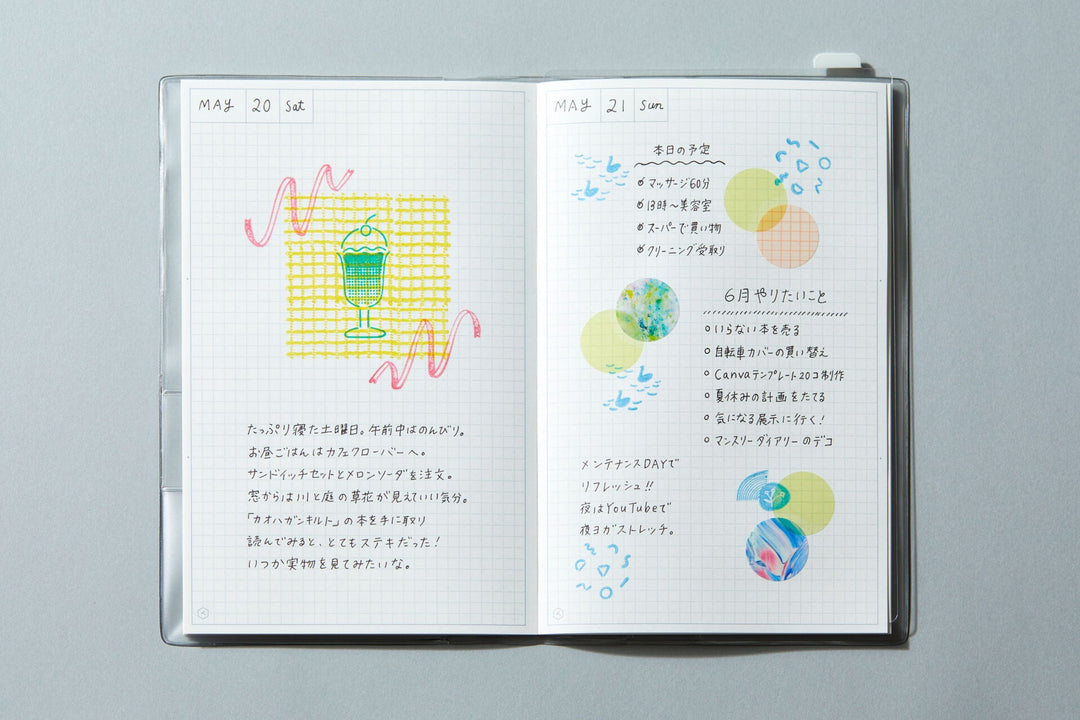 MAY 20 Sat
たっぷり寝た土曜日。午前中はのんびり。
お昼ごはんはカフェクローバーへ。
サンドイッチセットとメロンソーダを注文。
窓からは川と庭の草花が見えていい気分。
「カオハガンキルト」の本を手に取り
読んでみると、とてもステキだった!
いつか実物を見てみたいな。
MAY 21 Sun
本日の予定
マッサージ60分
13時〜美容室
スーパーで買い物
クリーニング受取り
6月やりたいこと
いらない本を売る
自転車カバーの買い替え
Canvaテンプレート20コ制作
夏休みの計画をたてる
気になる展示に行く!
マンスリーダイアリーのデコ
メンテナンスDAYで
リフレッシュ!!
夜はYouTubeで
夜ヨガストレッチ。